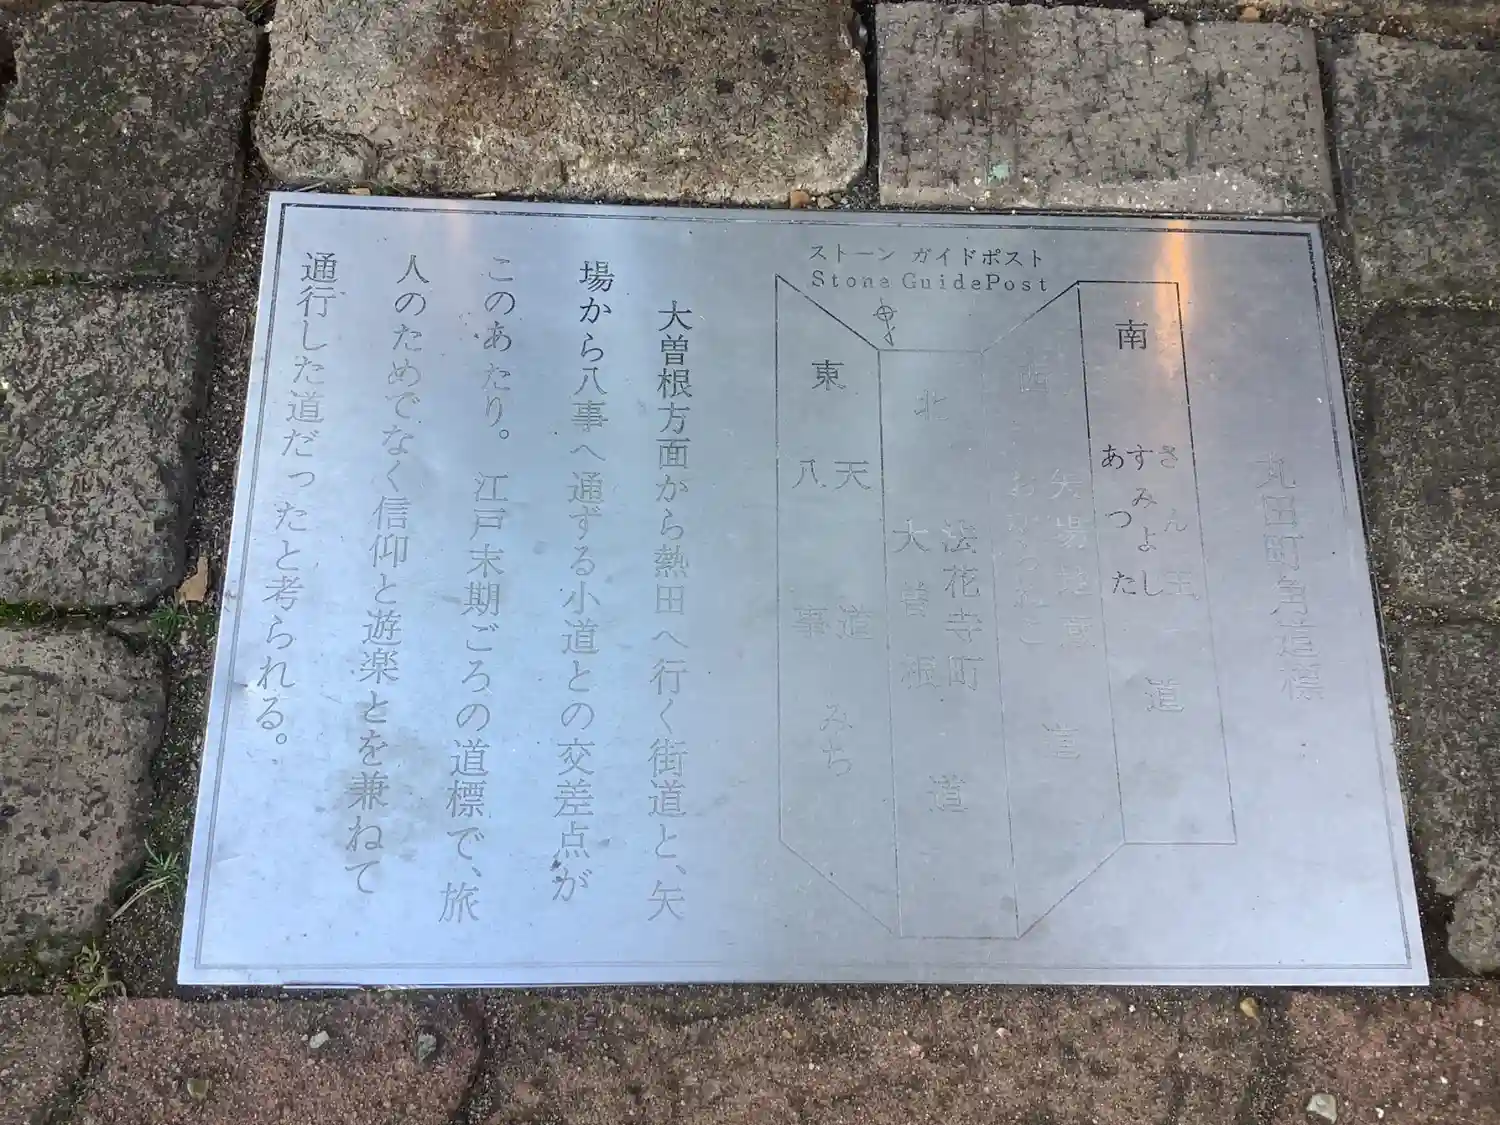 丸田町角道標
ストーン ガイドポスト
Stone GuidePost
南
さん王
すみよし
あつた
道
西
矢場地蔵
おからねこ
道
北
法花寺町
大曽根
道
東
天道
八事
みち
大曽根方面から熱田へ行く街道と、矢
場から八事へ通ずる小道との交差点が
このあたり。江戸末期ごろの道標で、旅
人のためでなく信仰と遊楽とを兼ねて
通行した道だったと考られる。